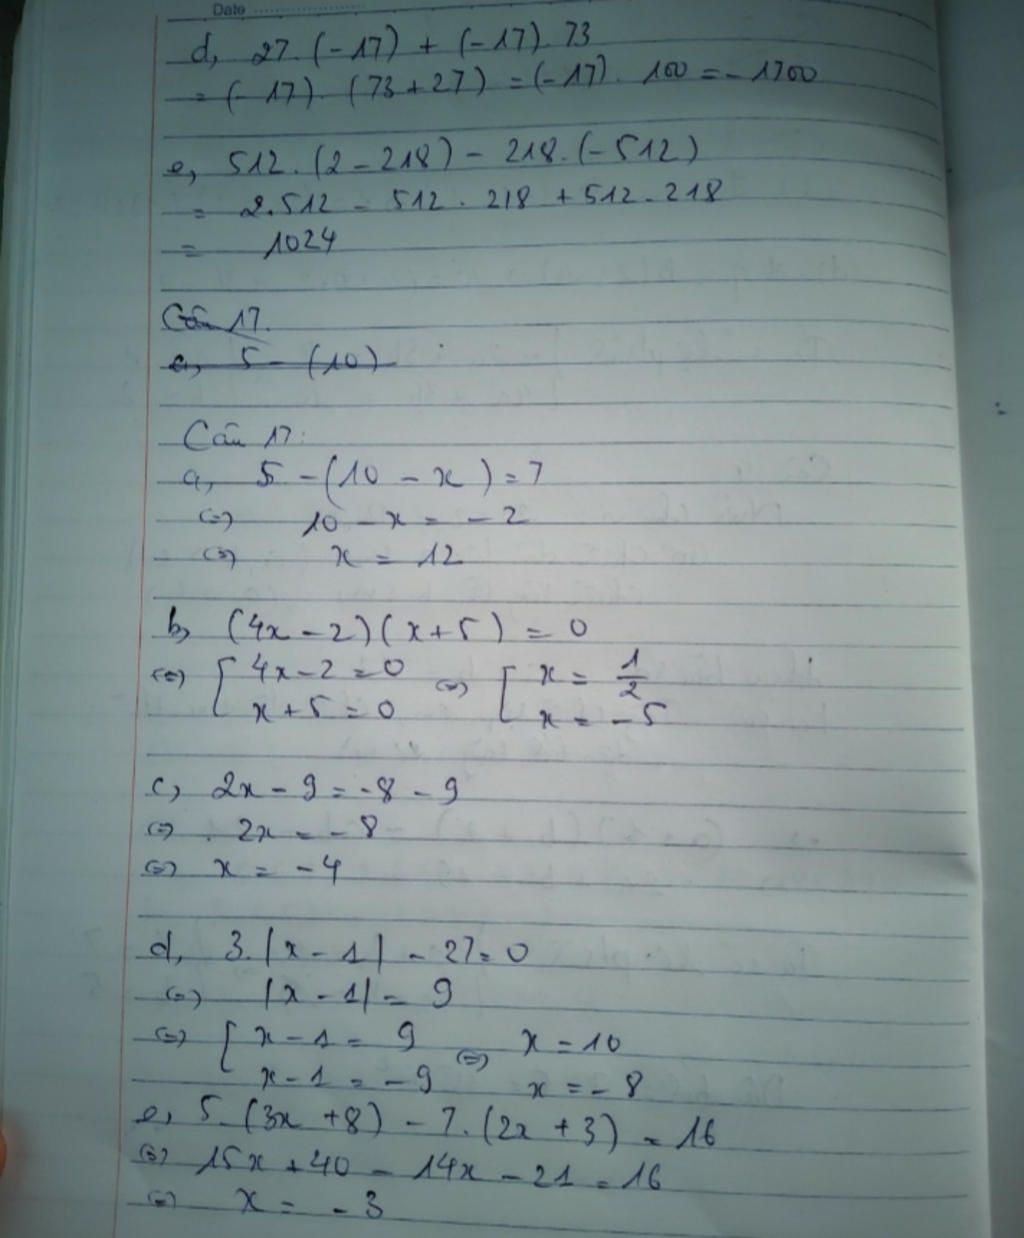 Date
d, 27. (-17) + (-17). 73
= (-17). (73+27) = (-17). 100 = -1700
e, 512. (2 - 218) - 218. (-512)
= 2.512 - 512. 218 + 512. 218
= 1024
Câu 17.
a, 5 - (10)
Câu 17:
a, 5 - (10 - x) = 7
(=) 10 - x = - 2
(=) x = 12
b, (4x - 2)(x+5) = 0
(=) [ 4x - 2 = 0 (=) [ x = 1/2
x + 5 = 0 x = - 5
c, 2x - 9 = -8 - 9
(=) 2x = - 8
(=) x = - 4
d, 3. |x - 1| - 27 = 0
(=) |x - 1| = 9
(=) [ x - 1 = 9 (=) x = 10
x - 1 = - 9 x = - 8
e, 5. (3x + 8) - 7. (2x + 3) = 16
(=) 15x + 40 - 14x - 21 = 16
(=) x = - 3